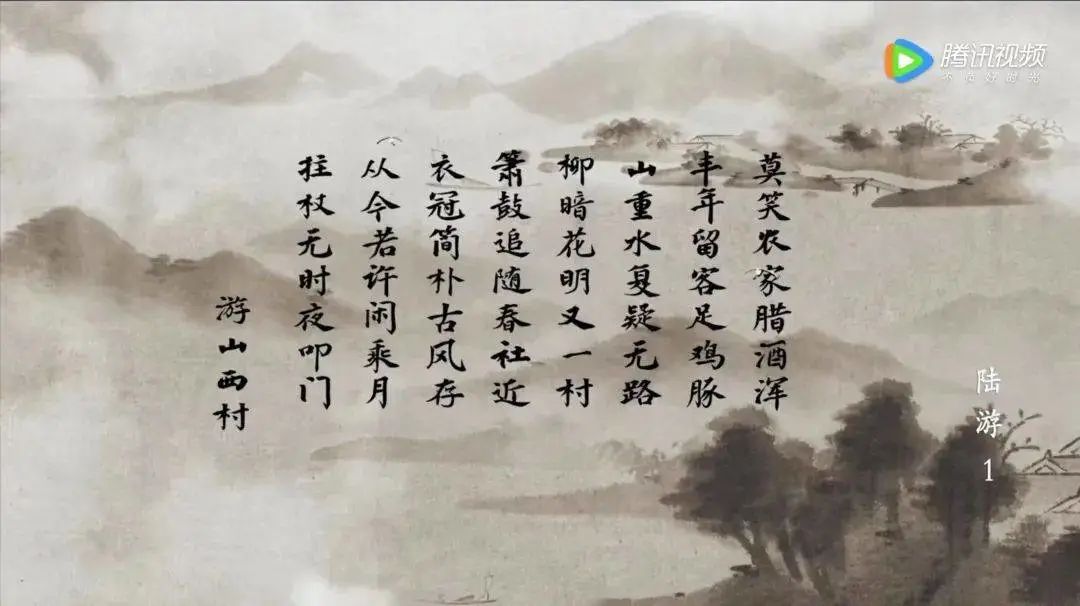 腾讯视频
不负好时光
莫笑农家腊酒浑
丰年留客足鸡豚
山重水复疑无路
柳暗花明又一村
箫鼓追随春社近
衣冠简朴古风存
从今若许闲乘月
拄杖无时夜叩门
游山西村
陆游 1